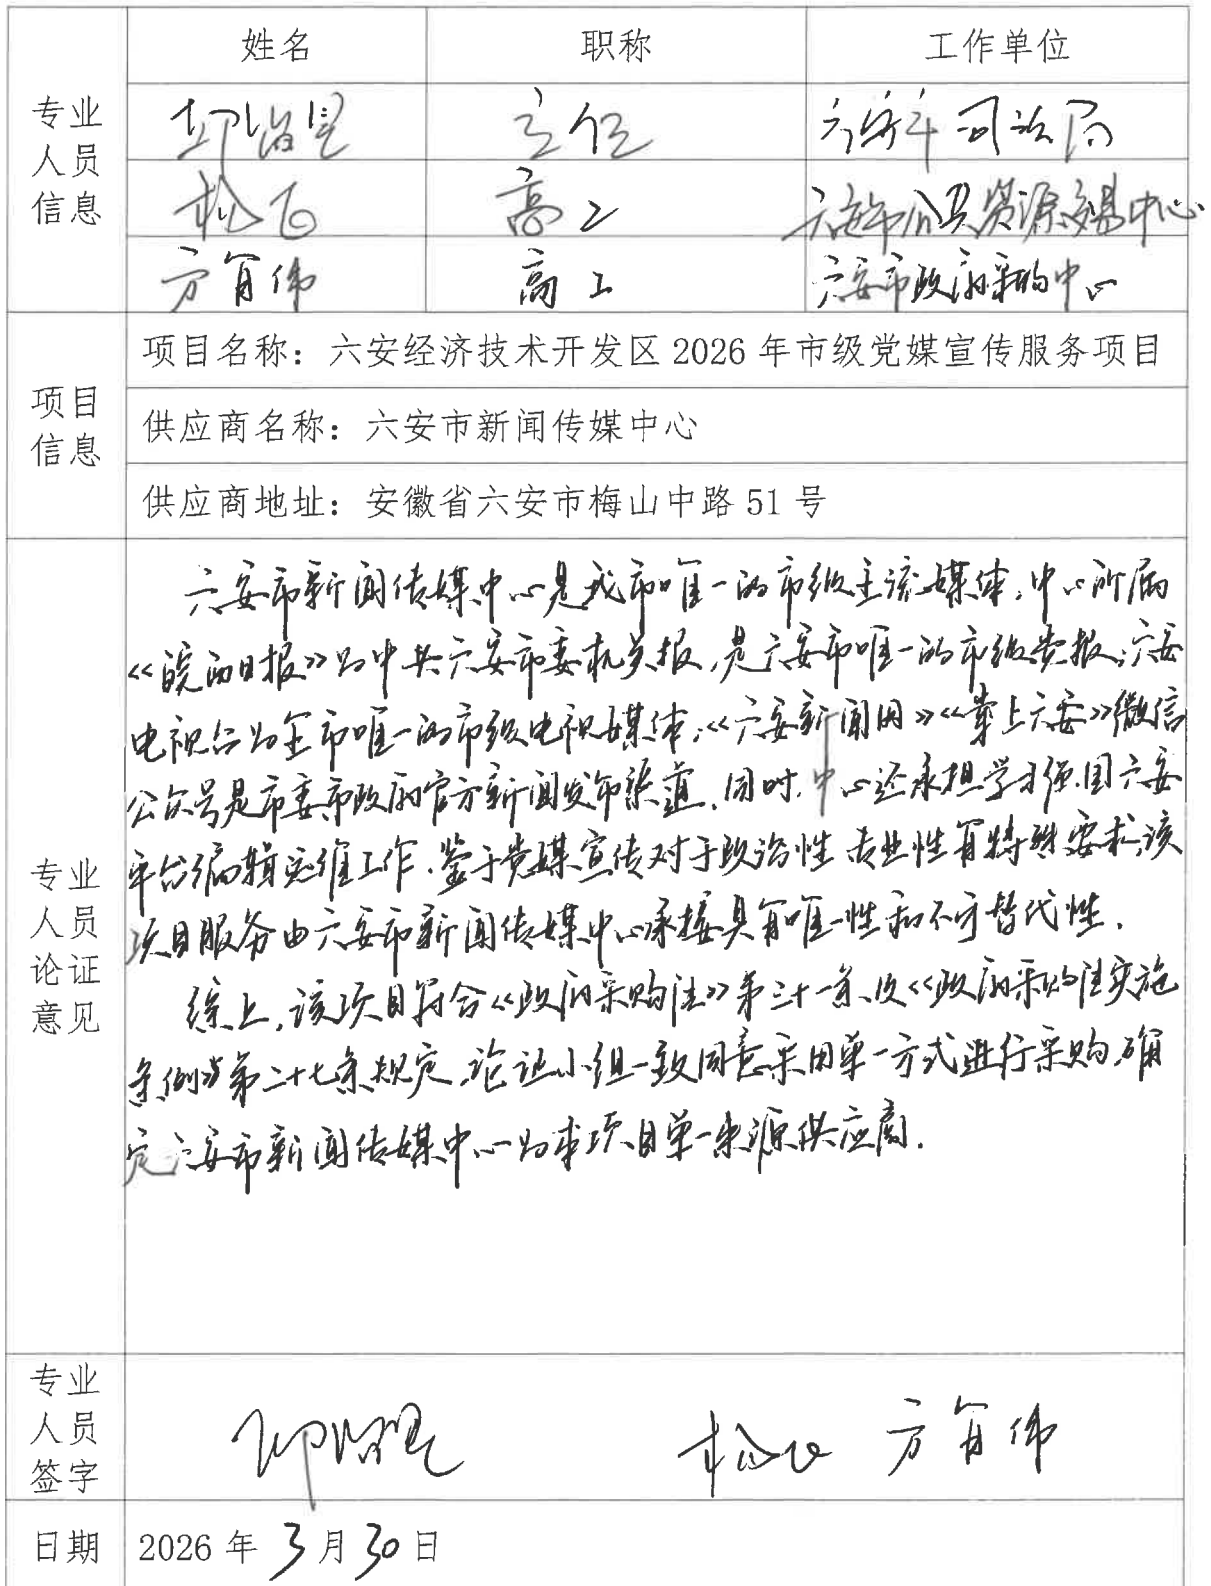 姓名 职称 工作单位
专业人员信息
主任 六安市司法局
高工 六安市公共资源交易中心
方有伟 高工 六安市政府采购中心
项目信息
项目名称：六安经济技术开发区2026年市级党媒宣传服务项目
供应商名称：六安市新闻传媒中心
供应商地址：安徽省六安市梅山中路51号
专业人员论证意见
六安市新闻传媒中心是我市唯一的市级主流媒体，中心所属
《皖西日报》为中共六安市委机关报，是六安市唯一的市级党报；六安
电视台为全市唯一的市级电视媒体；《六安新闻网》《掌上六安》微信
公众号是市委市政府官方新闻发布渠道。同时，中心还承担学习强国六安
平台编辑运维工作。鉴于党媒宣传对于政治性、专业性有特殊要求，该
项目服务由六安市新闻传媒中心承接具有唯一性和不可替代性。
综上，该项目符合《政府采购法》第三十一条及《政府采购法实施
条例》第二十七条规定，论证小组一致同意采用单一方式进行采购，确
定六安市新闻传媒中心为本项目单一来源供应商。
专业人员签字
方有伟
日期 2026年3月30日